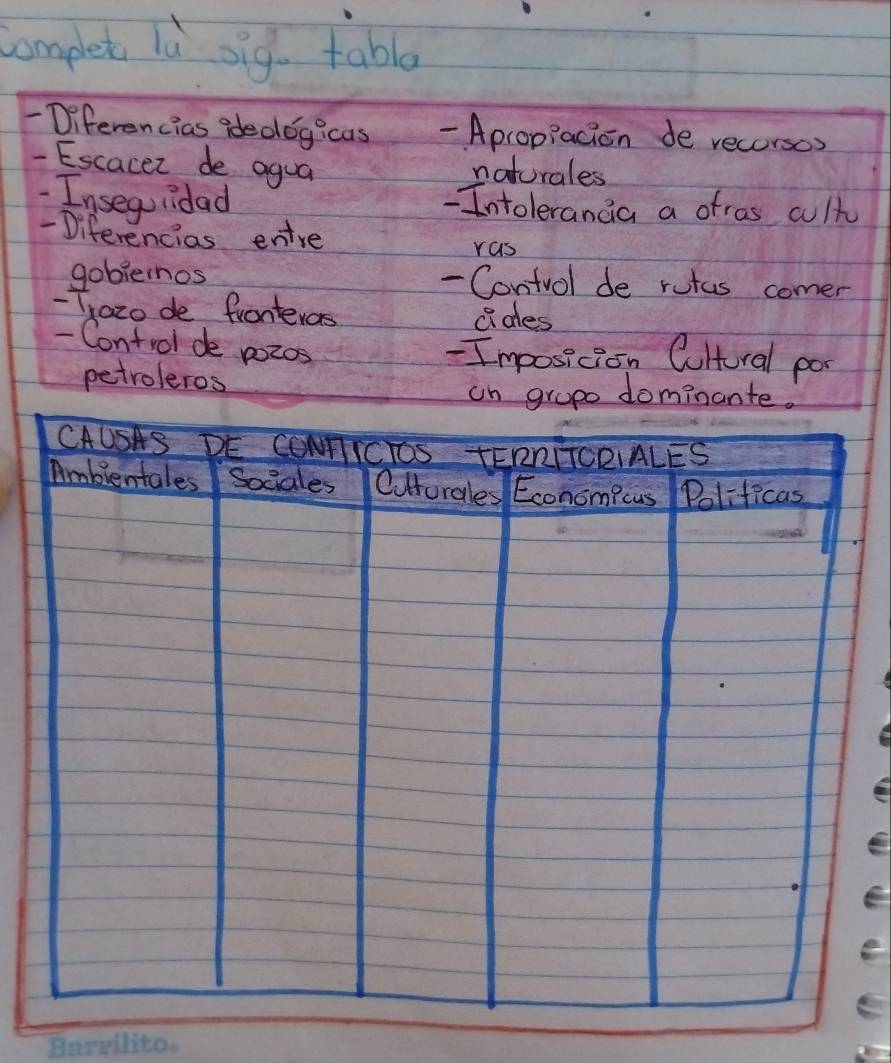 Completa la sig. tabla
-Diferencias ideológicas
-Escacez de agua
-Inseguridad
-Diferencias entre
gobiernos
-Trazo de fronteras
-Control de pozos
petroleros
-Apropiación de recursos
naturales
-Intolerancia a otras cultu
ras
-Control de rutas comer
ciales
-Imposición Cultural por
un grupo dominante.
CAUSAS DE CONFLICTOS TERRITORIALES
Ambientales Sociales Culturales Económicas Políticas
Barrilito®